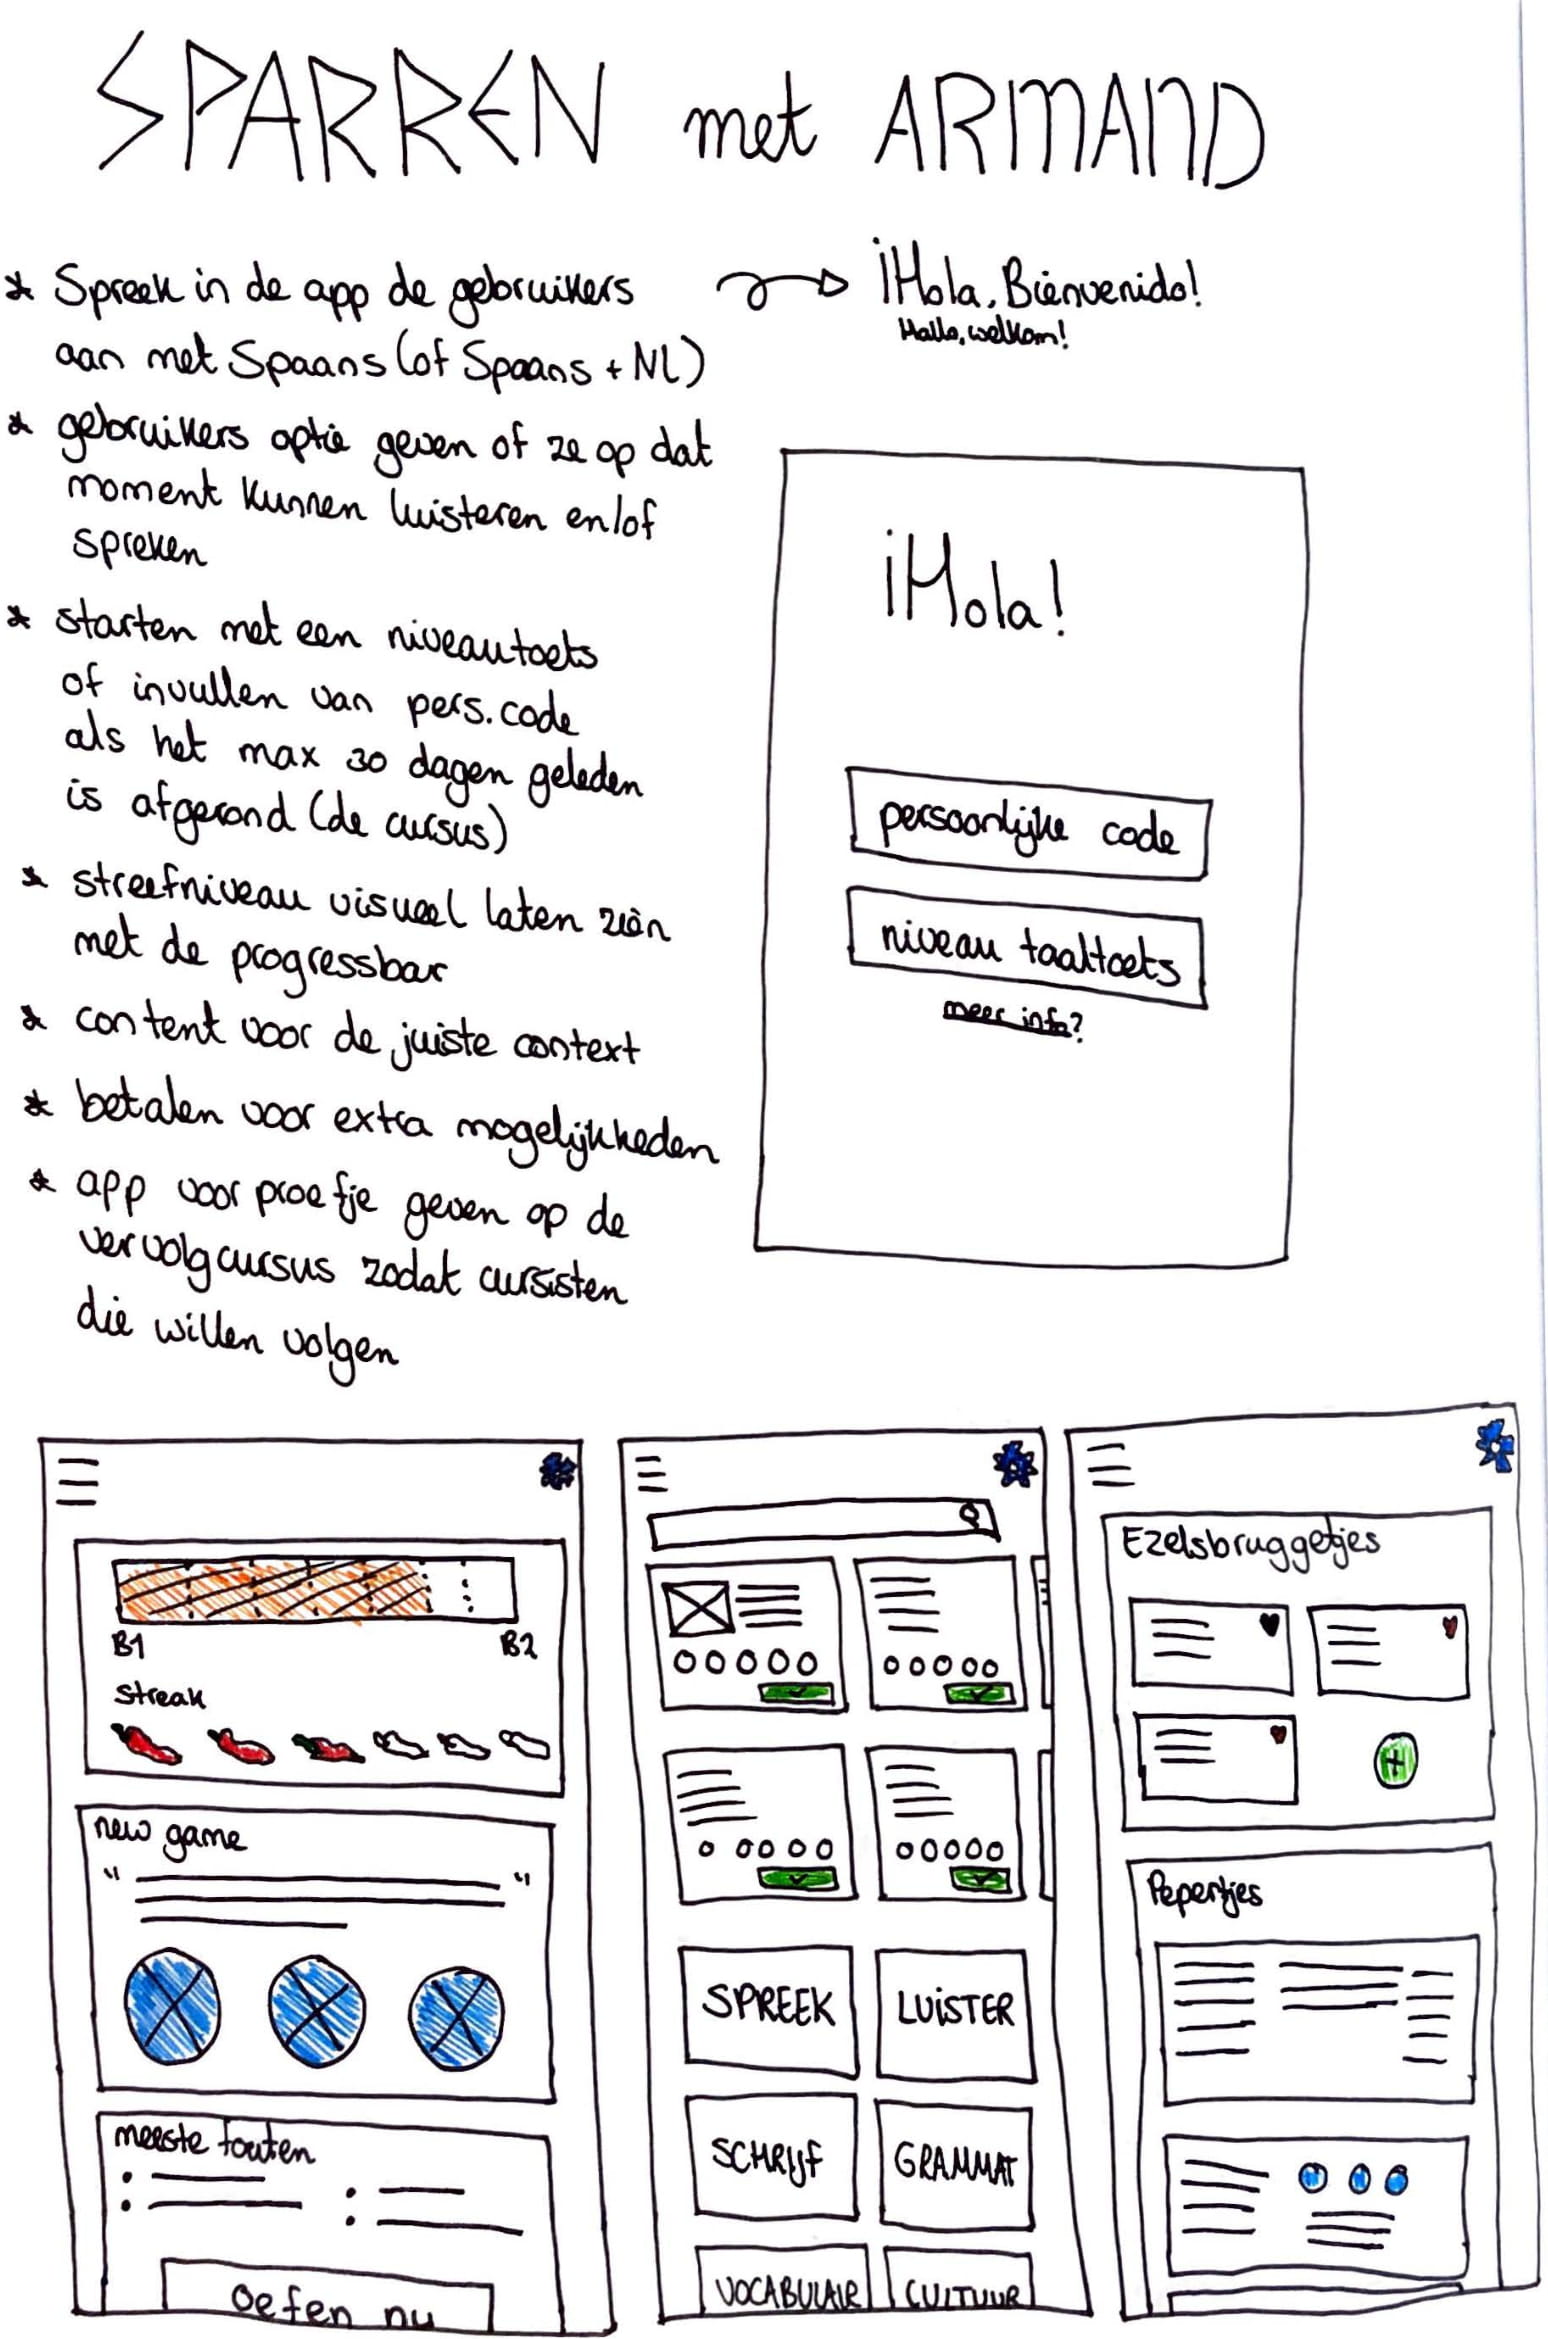 SPARREN met ARMAND
* Spreek in de app de gebruikers
aan met Spaans (of Spaans + NL)
¡Hola, Bienvenido!
Hallo, welkom!
* gebruikers optie geven of ze op dat
moment kunnen luisteren en/of
spreken
* starten met een niveautoets
of invullen van pers. code
als het max 30 dagen geleden
is afgerond (de cursus)
* streefniveau visueel laten zien
met de progressbar
* content voor de juiste context
* betalen voor extra mogelijkheden
* app voor proefje geven op de
vervolgcursus zodat cursisten
die willen volgen
¡Hola!
persoonlijke code
niveau taaltoets
meer info?
B1 B2
Streak
new game
" "
meeste fouten
oefen nu
SPREEK
LUiSTER
SCHRIJF
GRAMMAT
VOCABULAIR
CULTUUR
Ezelsbruggetjes
+
Pepertjes